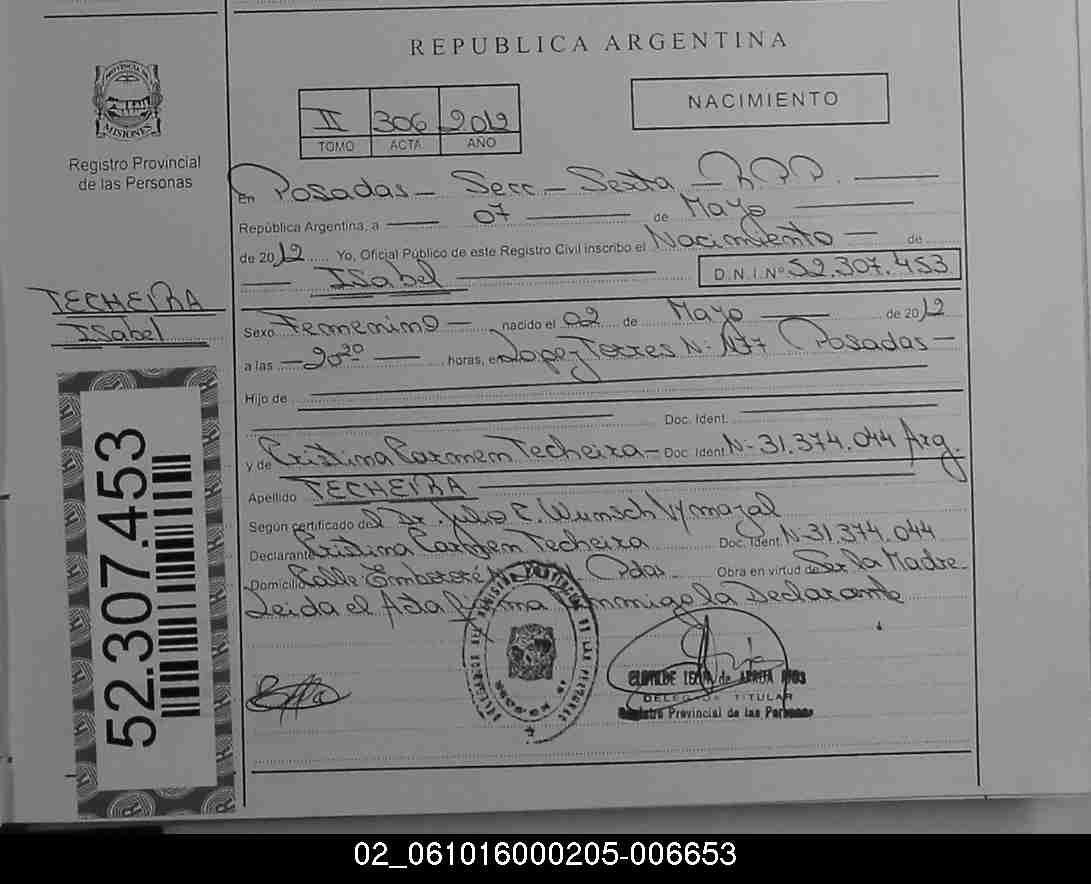 REPUBLICA ARGENTINA
PROVINCIA DE
MISIONES
Registro Provincial
de las Personas
II 306 2012
TOMO ACTA AÑO
NACIMIENTO
En Posadas - Secc - Sexta - R.P.P.
República Argentina, a 07 de Mayo
de 2012 Yo, Oficial Público de este Registro Civil inscribo el Nacimiento - de
ISabel D.N.I.Nº 52.307.453
TECHEIRA
ISabel
Sexo Femenino - nacido el 02 de Mayo de 2012
a las - 20 20 - horas, en Lopez Torres N- 1177 Posadas -
Hijo de
Doc. Ident.
y de Cristina Carmen Techeira - Doc. Ident. N- 31.374.044 Arg.
Apellido TECHEIRA
Según certificado del Dr. Julio C. Wunsch Vymazal
Declarante Cristina Carmen Techeira Doc. Ident. N- 31.374.044
Domicilio Calle Pdas Obra en virtud de Ser la Madre -
Leida el Acta Firma Conmigo la Declarante
52.307.453
DELEGADO TITULAR
Registro Provincial de las Personas
02_061016000205-006653